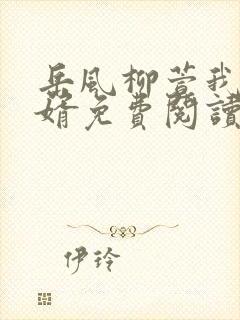 岳风柳萱我
婿免费阅读
伊玲